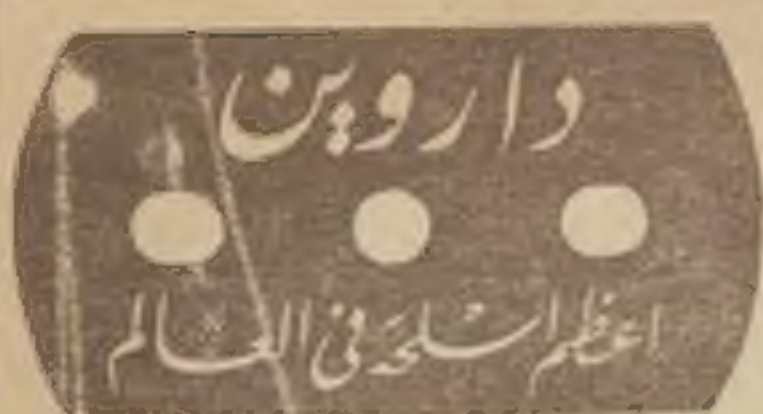 داروين
اعظم اسلحة فى العالم